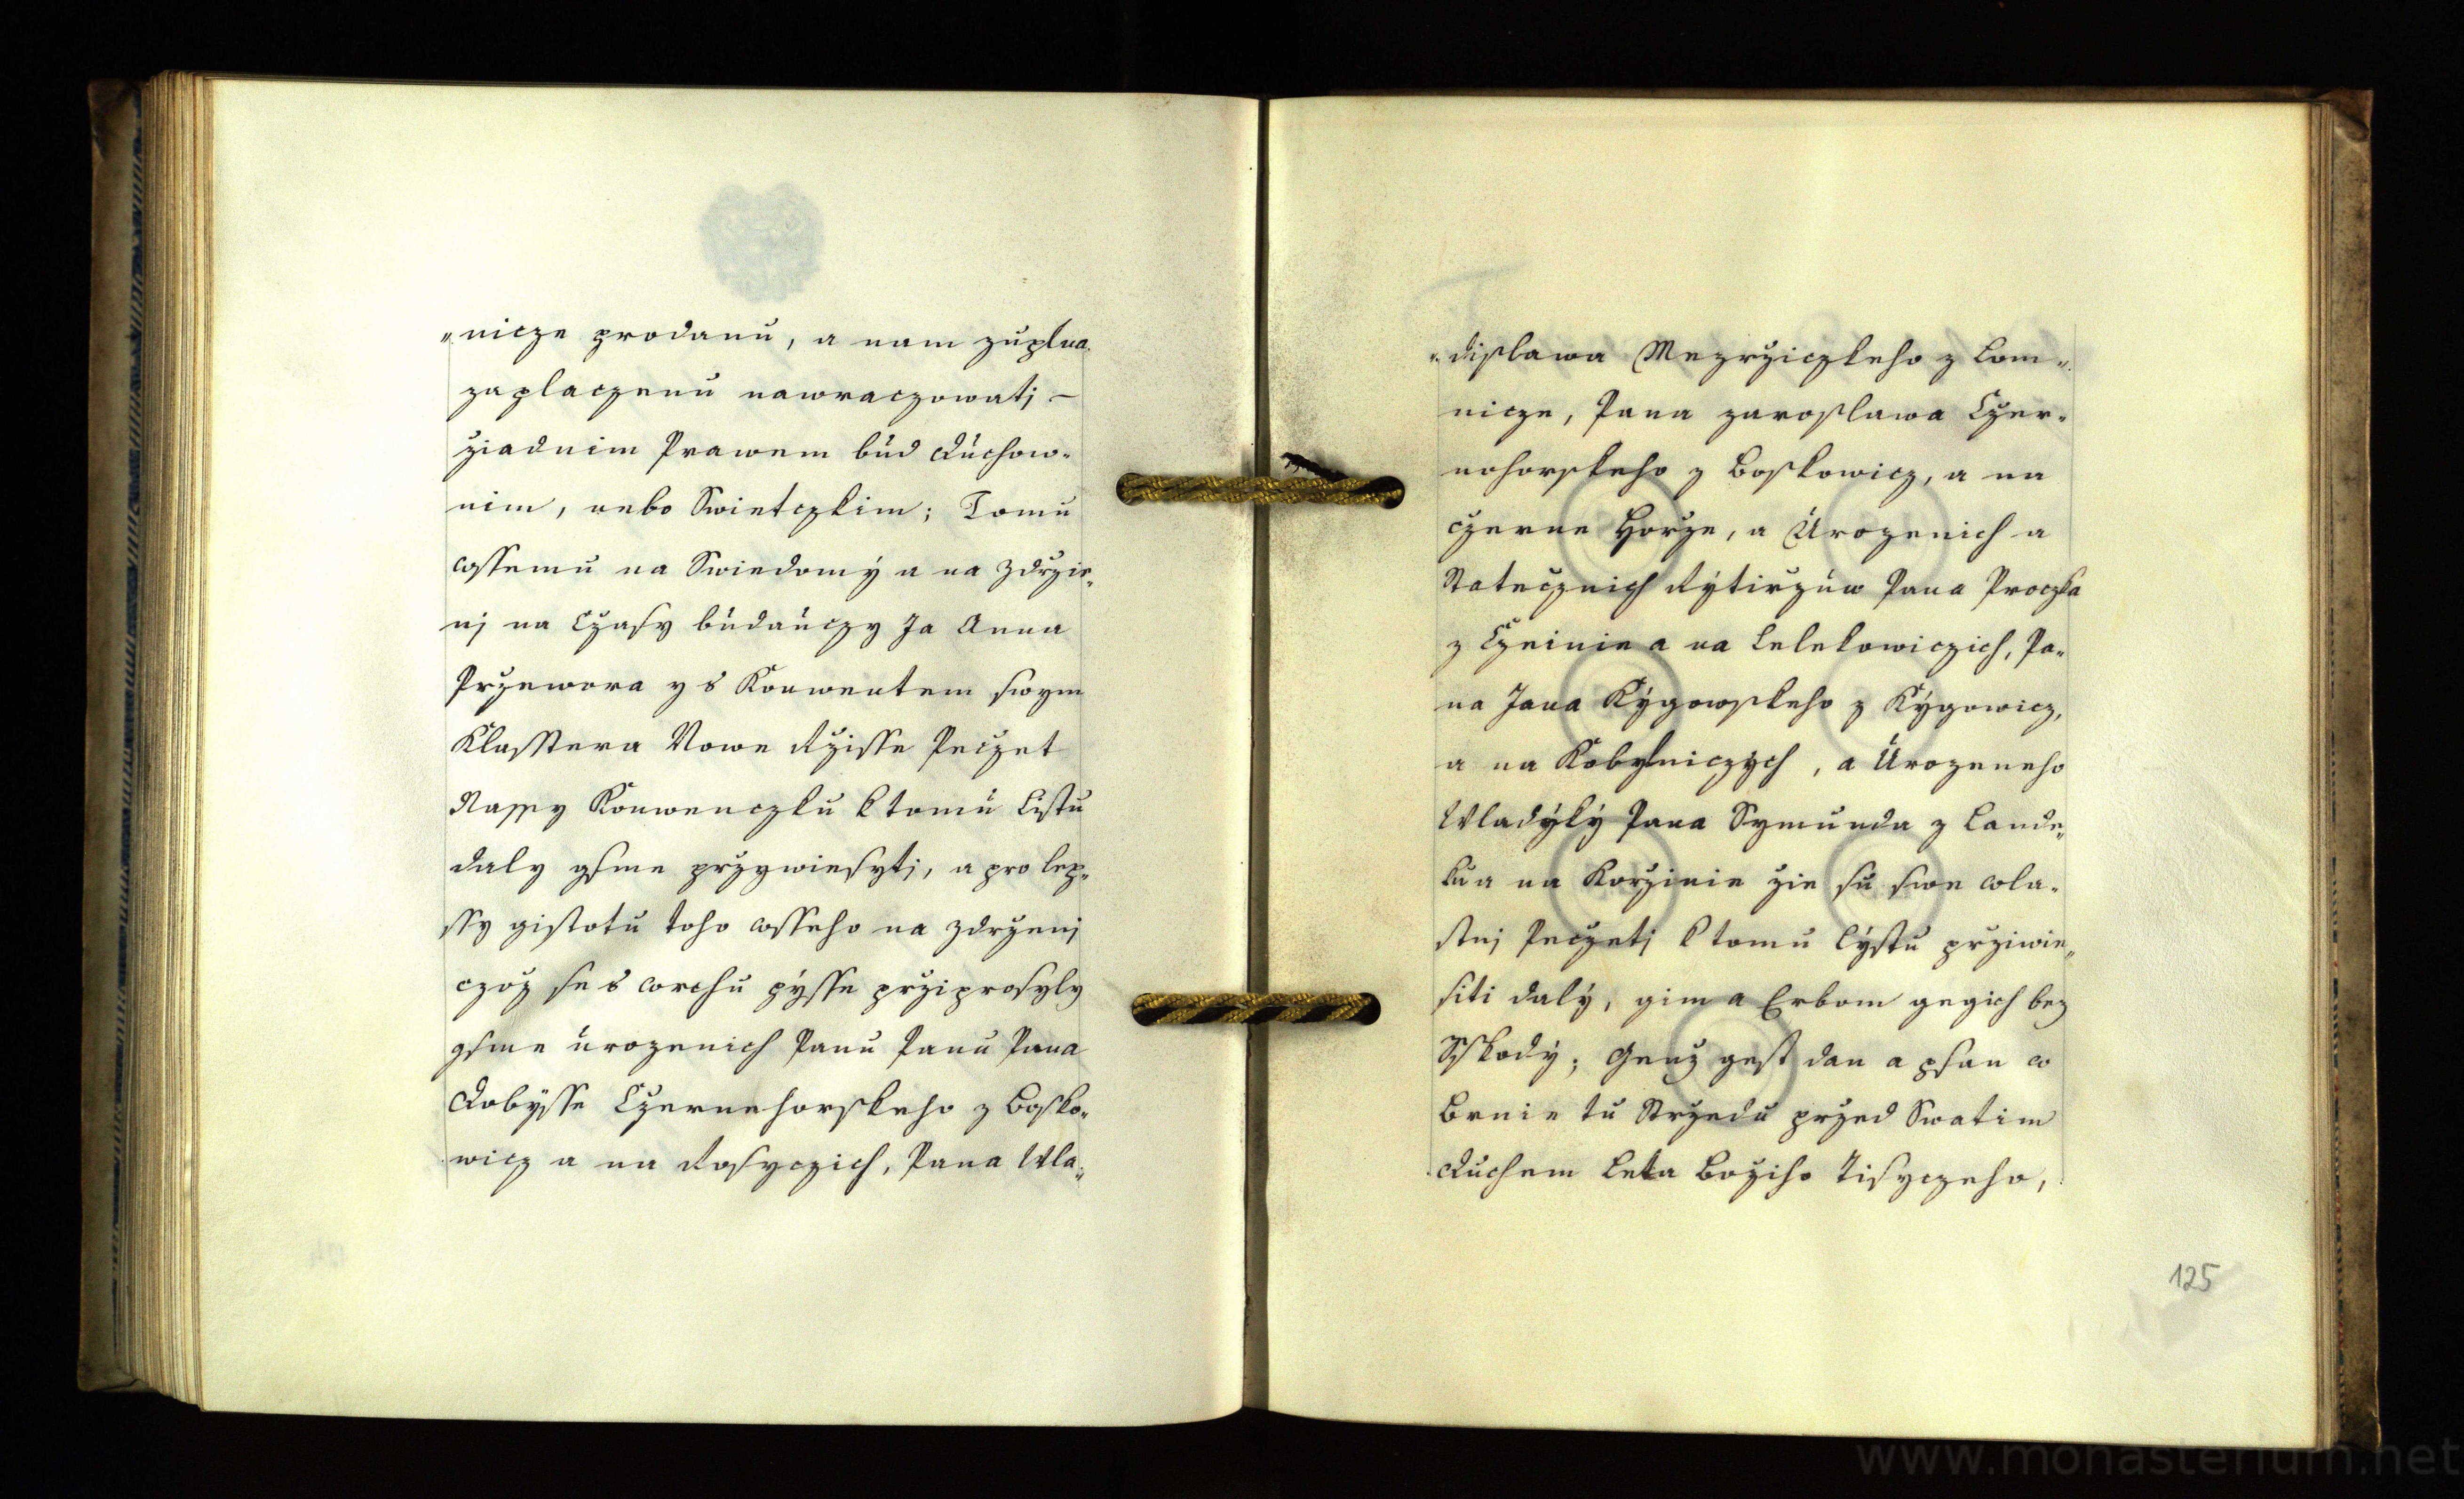 "nicze prodanu, a nam zuplna
zaplaczenu nawraczowatj –
žiadnim Prawem bud Duchow-
nim, nebo Swietczkim; Tomu
wssemu na Swiedomý a na zdrzie-
nj na Czasy buduczy Ja Anna
Przewora y s Konwentem swym
Klasstera Nowe Rzisse Peczet
Nassy Konwenczku k tomu Listu
daly gsme przywiesytj, a pro lep-
ssy gistotu toho wsseho na zdrzenj
czoz se s wrchu pýsse prziprosyly
gsme urozenich Panu Panu Pana
Dobýsse Czernehorskeho z Bosko-
wicz a na Rosyczich, Pana Wla-
"dislawa Mezrziczkeho z Lom-
nicze, Pana zaroslawa Czer-
nohorskeho z Boskowicz, a na
czerne Horze, a Urozenich a
Statecznich Rýtirzuw Pana Proczka
z Czeinie a na Lelekowiczich, Pa-
na Jana Kýgowskeho z Kýgowicz,
a na Kobylniczych, a Urozeneho
Wladýký Pana Symunda z Lande-
ku a na Korzinie zie su swe wla-
stnj Peczetj k tomu Lýstu prziwie-
siti dalý, gim a Erbom gegich bez
Sskodý; Genz gest dan a psan w
Brnie tu Strzedu przed Swatim
Duchem Leta Božiho Tisyczeho,
125
www.monasterium.net